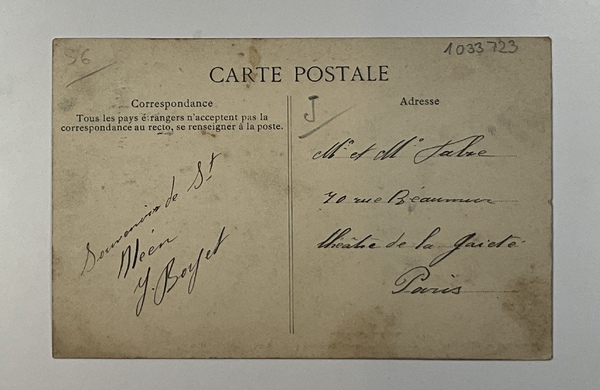 56
1033723
CARTE POSTALE
Correspondance
Tous les pays étrangers n'acceptent pas la
correspondance au recto, se renseigner à la poste.
J
Adresse
Souvenir de St
Méen
Y. Boyet
Mr et Mme Fabre
70 rue Réaumur
théâtre de la Gaieté
Paris